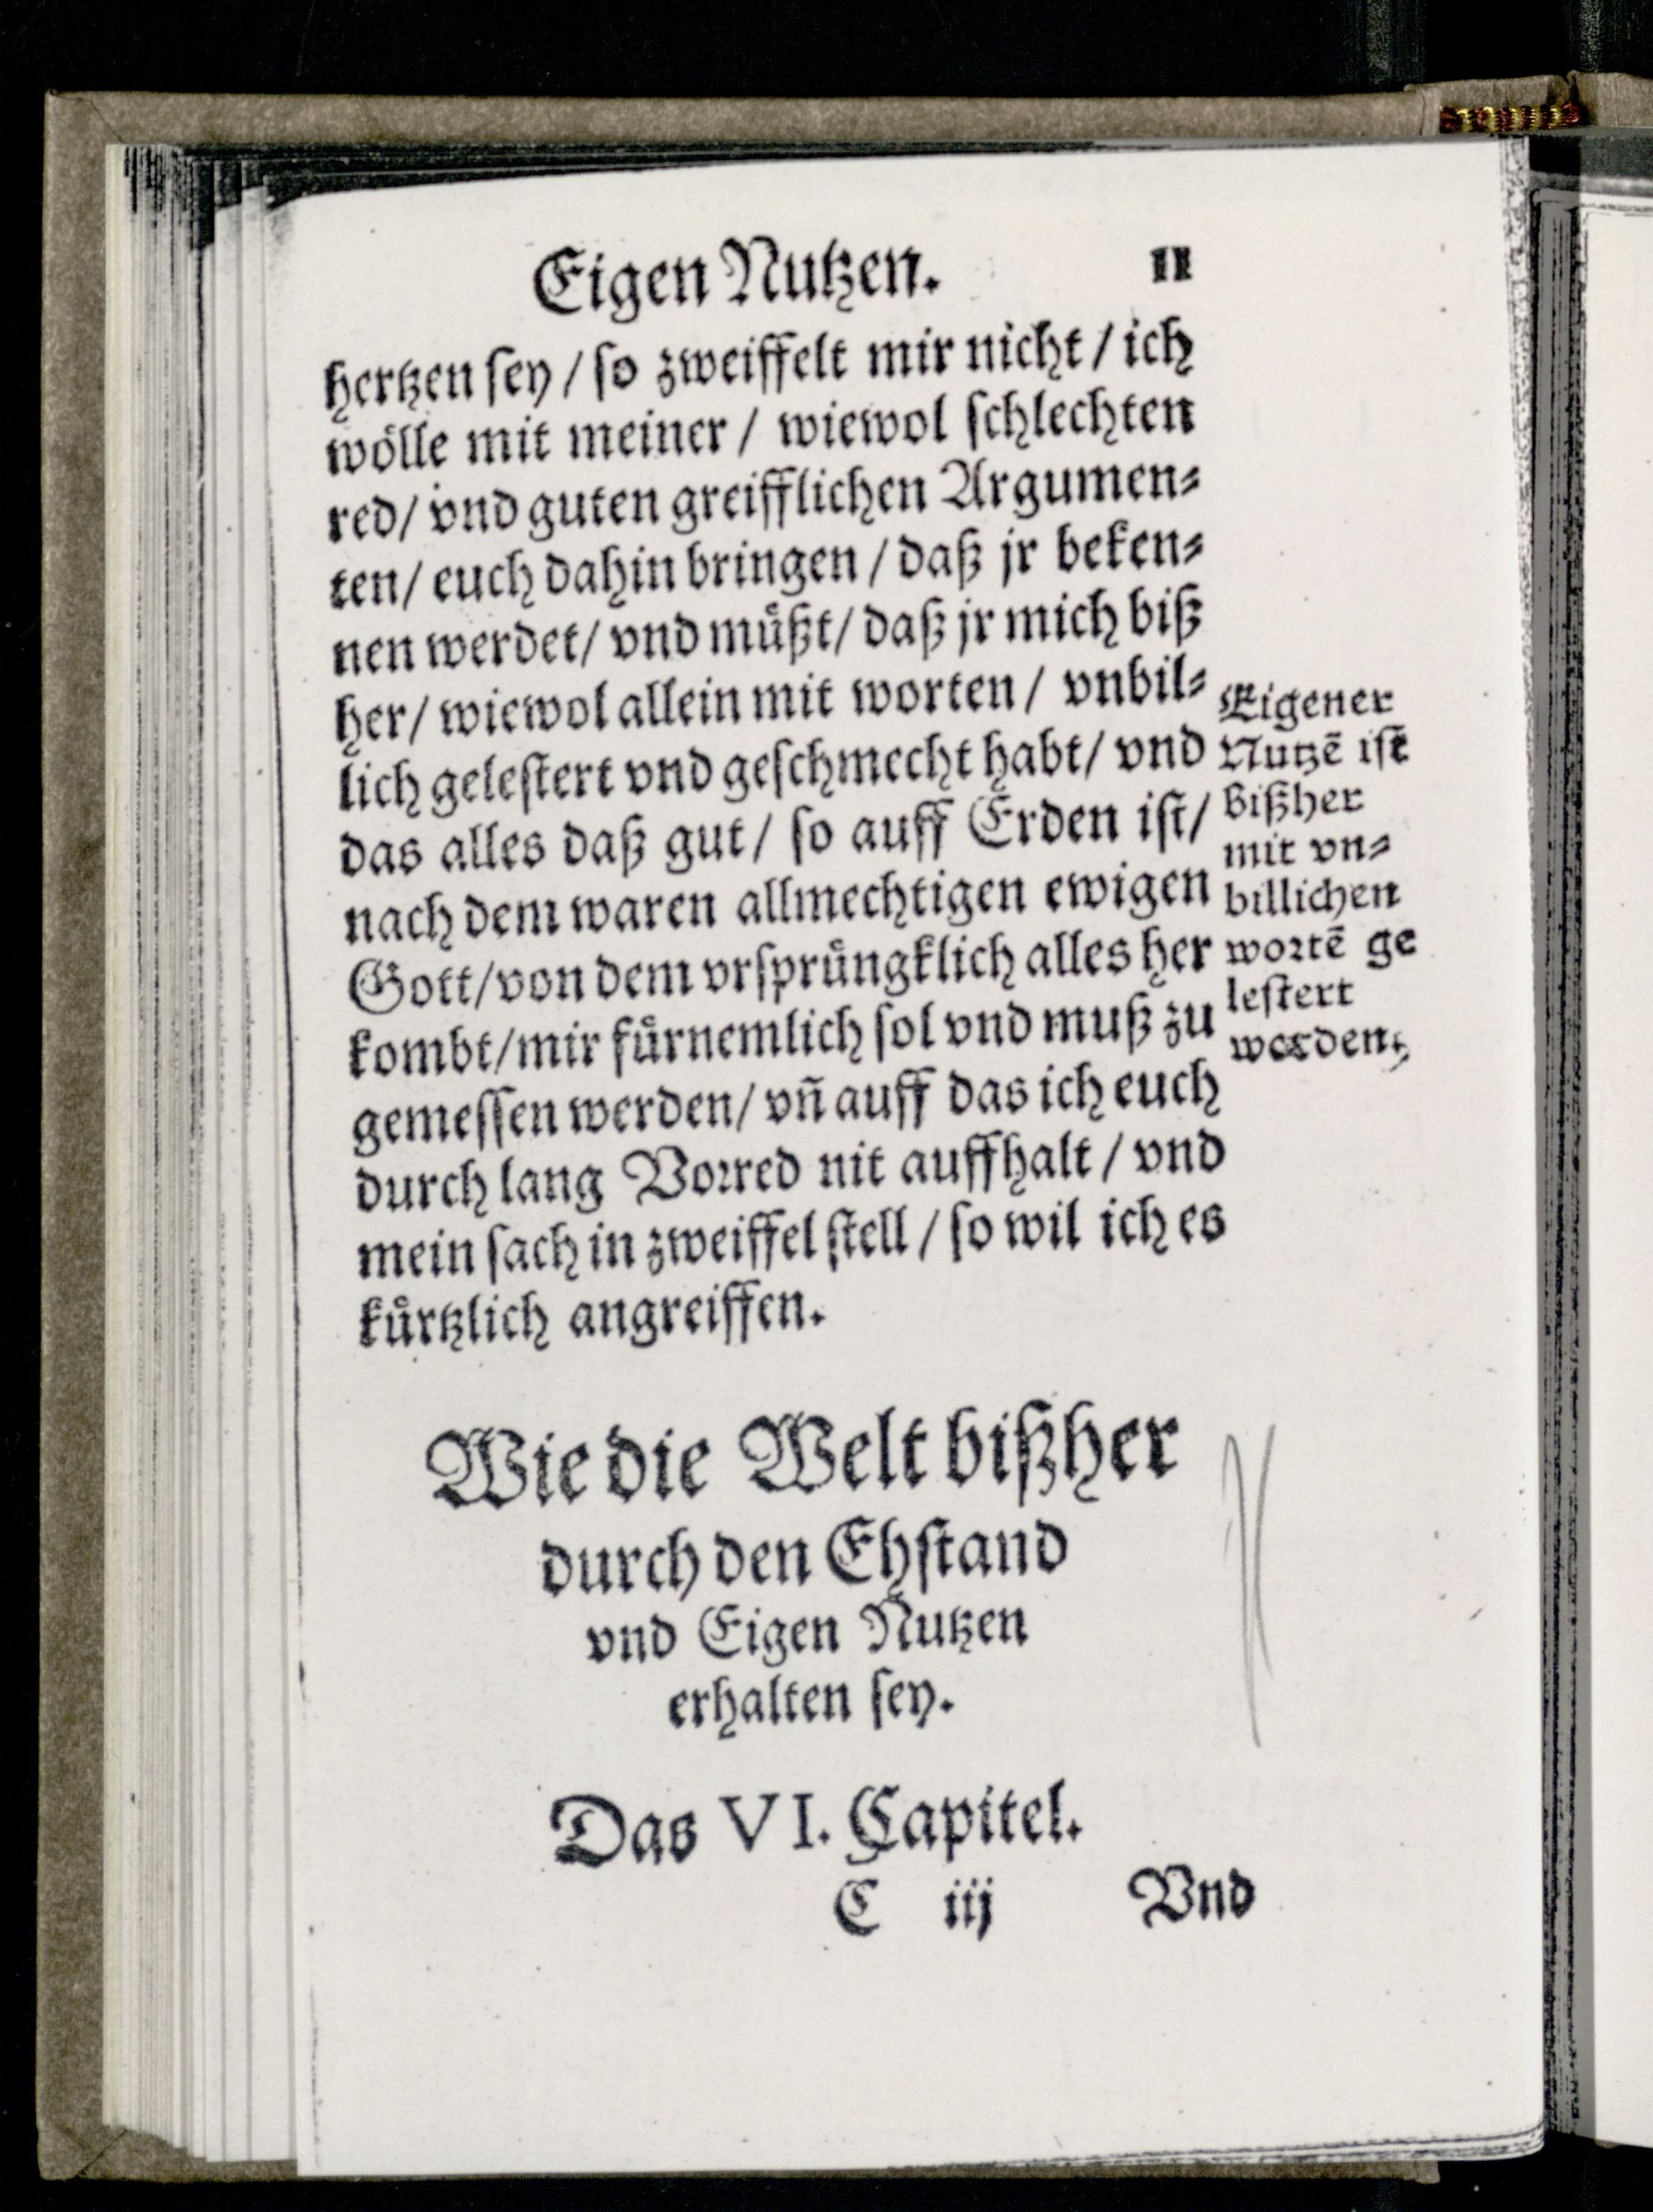 Eigen Nutzen. 11
hertzen ſey / ſo zweiffelt mir nicht / ich
woͤlle mit meiner / wiewol ſchlechten
red / vnd guten greifflichen Argumen⸗
ten / euch dahin bringen / daß jr beken⸗
nen werdet / vnd muͤßt / daß jr mich biß
her / wiewol allein mit worten / vnbil⸗
lich geleſtert vnd geſchmecht habt / vnd
das alles daß gut / ſo auff Erden iſt /
nach dem waren allmechtigen ewigen
Gott / von dem vrſpruͤngklich alles her
kombt / mir fuͤrnemlich ſol vnd muß zu
gemeſſen werden / vñ auff das ich euch
durch lang Voꝛred nit auffhalt / vnd
mein ſach in zweiffel ſtell / ſo wil ich es
kuͤrtzlich angreiffen.
Eigener
Nutzē iſt
bißher
mit vn⸗
billichen
woꝛtē ge
leſtert
worden.
Wie die Welt bißher
durch den Ehſtand
vnd Eigen Nutzen
erhalten ſey.
Das VI. Capitel.
C iij Vnd